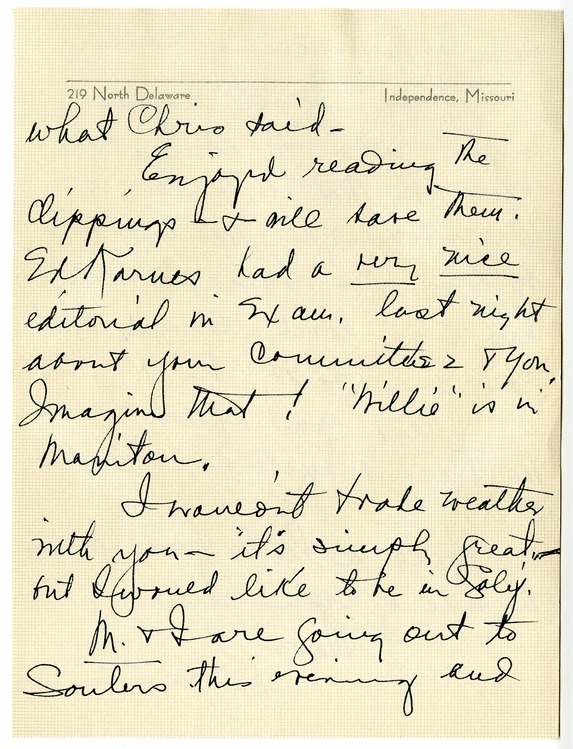 219 North Delaware Independence, Missouri
what Chris said-
Enjoyed reading the
clippings - & will save them.
Ed Karnes had a very nice
editorial in Exam. last night
about your Committees & You.
Imagine that! "Willie" is in
Maniton.
I wouldn't trade weather
with you - it's simply great -
but I would like to be in
M. & I are going out to
Souters this evening and